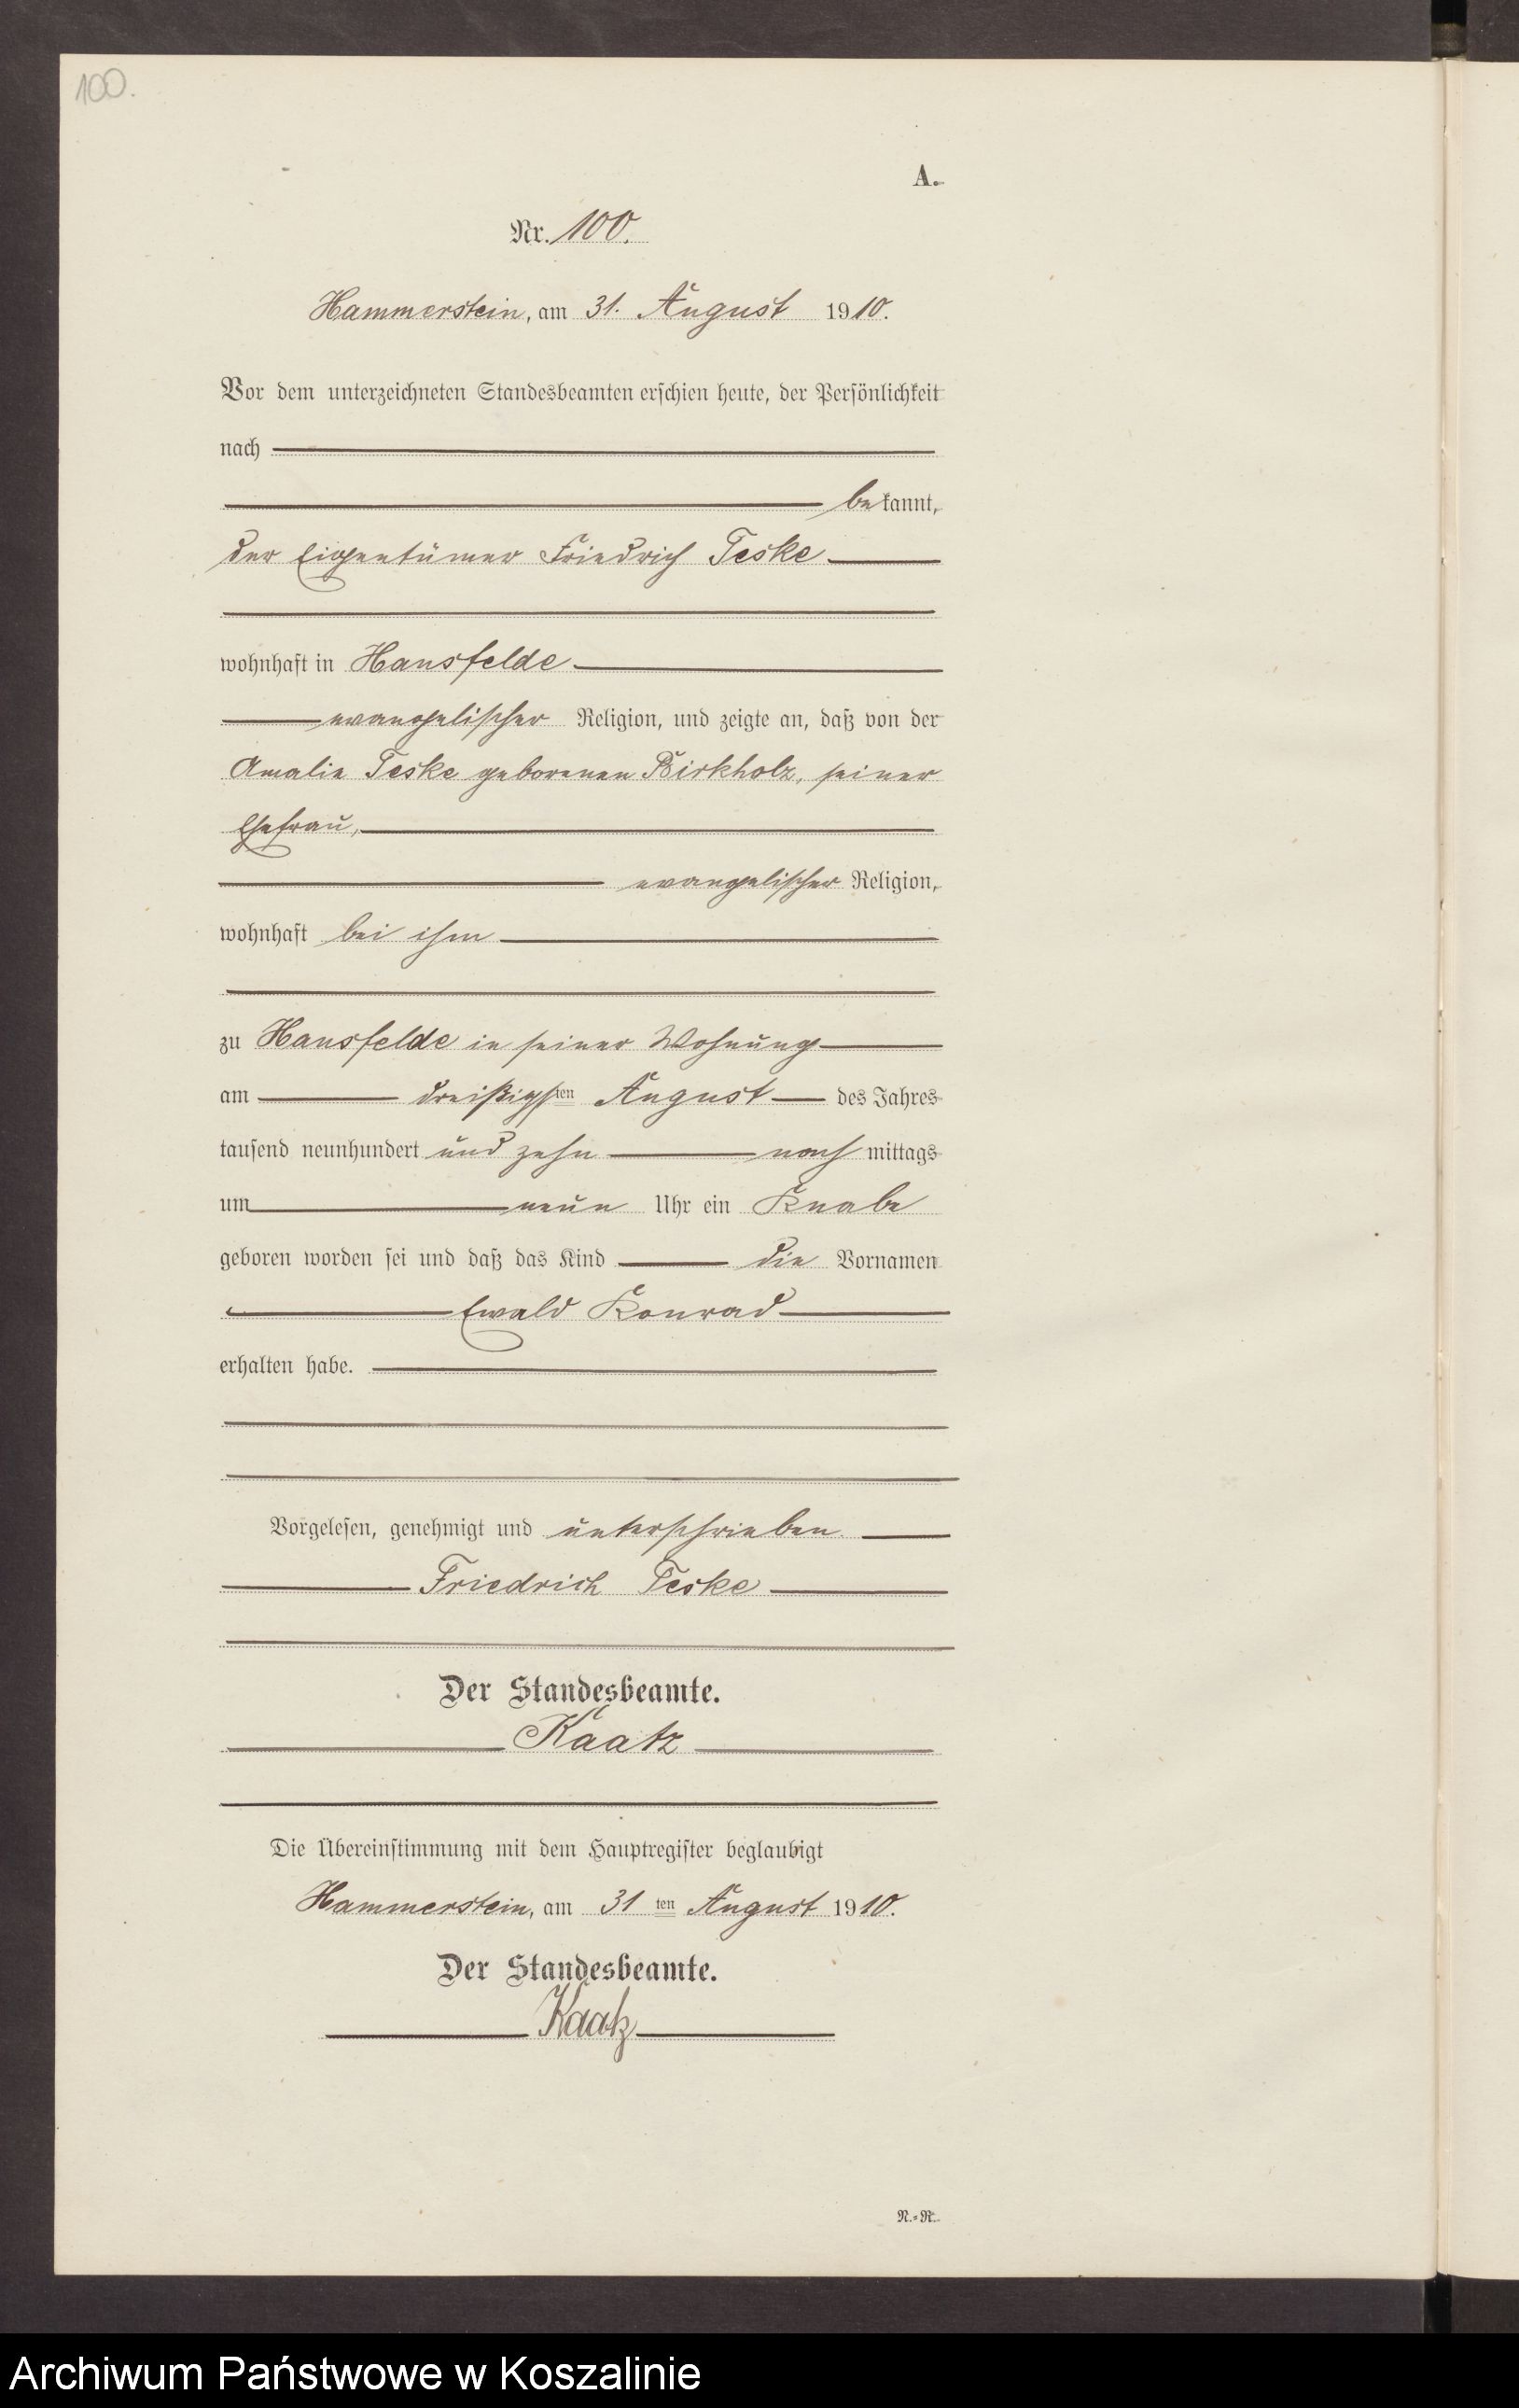 100.
A.
Nr. 100.
Hammerstein, am 31. August 1910.
Vor dem unterzeichneten Standesbeamten erschien heute, der Persönlichkeit
nach
bekannt,
der Eigentümer Friedrich Teske
wohnhaft in Hansfelde
evangelischer Religion, und zeigte an, daß von der
Amalie Teske geborenen Birkholz, seiner
Ehefrau,
evangelischer Religion,
wohnhaft bei ihm
zu Hansfelde in seiner Wohnung
am dreißigsten August des Jahres
tausend neunhundert und zehn nachmittags
um neun Uhr ein Knabe
geboren worden sei und daß das Kind die Vornamen
Ewald Konrad
erhalten habe.
Vorgelesen, genehmigt und unterschrieben.
Friedrich Teske
Der Standesbeamte.
Kaatz
Die Übereinstimmung mit dem Hauptregister beglaubigt
Hammerstein, am 31 ten August 1910.
Der Standesbeamte.
Kaatz
N.=R.
Archiwum Państwowe w Koszalinie